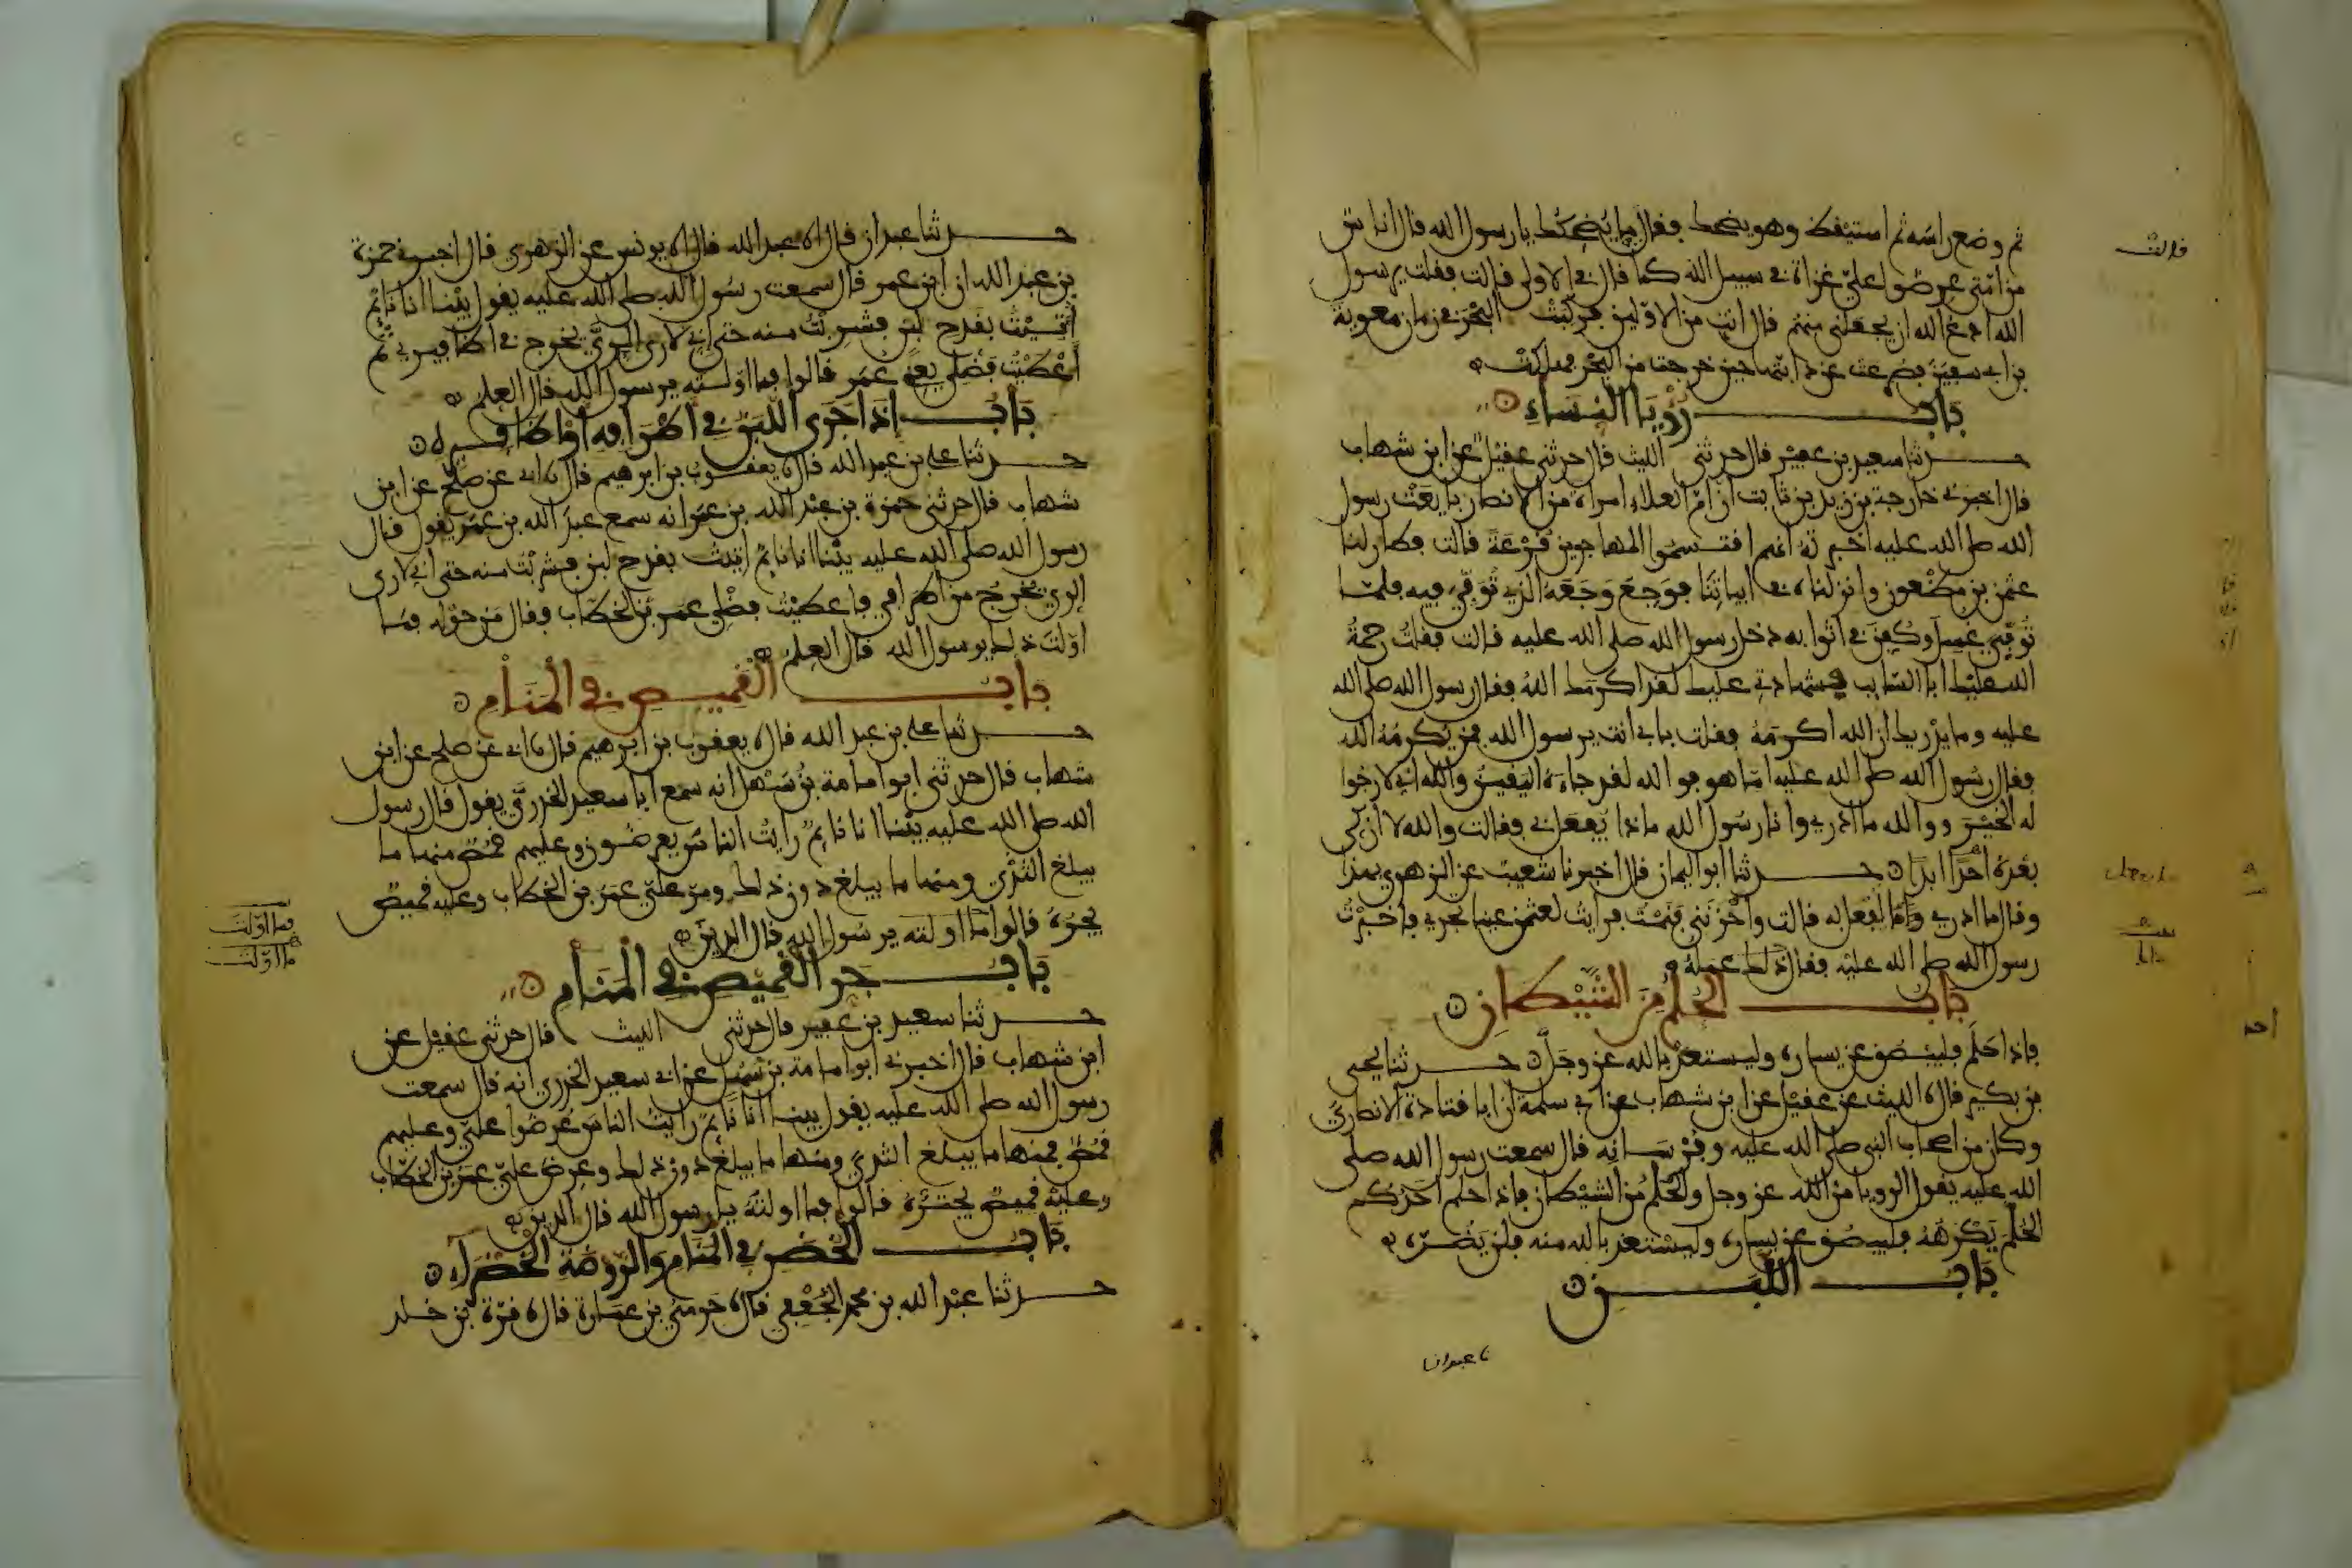 ثم وضع راسه ثم استيقظ وهو يضحك فقال ما يضحكك يا رسول الله قال اناس
من امتي عرضوا علي غزاة في سبيل الله كما قال في الاولى قالت فقلت يرسول
الله ادع الله ان يجعلني منهم قال انت من الاولين فركبت البحر في زمان معوية
بن ابي سفين فصرعت عن دابتها حين خرجت من البحر فهلكت
باب رؤيا النساء
حدثنا سعيد بن عفير قال حدثني الليث قال حدثني عقيل عن ابن شهاب
قال اخبرني خارجة بن زيد بن ثابت ان ام العلاء امراة من الانصار بايعت رسول
الله صلى الله عليه اخبرته انهم اقتسموا المهاجرين قرعة قالت فطار لنا
عثمن بن مظعون وانزلناه في ابياتنا فوجع وجعه الذي توفي فيه فلما
توفي غسل وكفن في اثوابه دخل رسول الله صلى الله عليه قالت فقلت رحمة
الله عليك ابا السايب فشهادتي عليك لقد اكرمك الله فقال رسول الله صلى الله
عليه وما يدريك ان الله اكرمه فقلت بابي انت يرسول الله فمن يكرمه الله
فقال رسول الله صلى الله عليه اما هو فو الله لقد جاءه اليقين والله اني لارجوا
له الخير ووالله ما ادري وانا رسول الله ماذا يفعل بي فقالت والله لا ازكي
بعده احدا ابدا حدثنا ابو اليمان قال اخبرنا شعيب عن الزهري بهذا
وقال ما ادري ما يفعل به قالت واحزنني فنمت فرايت لعثمن عينا تجري فاخبرت
رسول الله صلى الله عليه فقال ذلك عمله
باب الحلم من الشيطان
فاذا حلم فليبصق عن يساره وليستعذ بالله عز وجل حدثنا يحيى
بن بكير قال نا الليث عن عقيل عن ابن شهاب عن ابي سلمة ان ابا قتادة الانصاري
وكان من اصحاب النبي صلى الله عليه وفرسانه قال سمعت رسول الله صلى
الله عليه يقول الرويا من الله عز وجل والحلم من الشيطان فاذا حلم احدكم
الحلم يكرهه فليبصق عن يساره وليستعذ بالله منه فلن يضره
باب اللبن
نا عبدان انا
قالت
حدثنا عبدان قال انا عبد الله قال انا يونس عن الزهري قال اخبرني حمزة
بن عبد الله ان ابن عمر قال سمعت رسول الله صلى الله عليه يقول بينا انا نايم
اتيت بقدح لبن فشربت منه حتى اني لارى الري يخرج في اظافيري ثم
اعطيت فضلي يعني عمر قالوا فما اولته يرسول الله قال العلم
باب اذا جرى اللبن في اطرافه او اظافيره
حدثنا علي بن عبد الله قال نا يعقوب بن ابرهيم قال نا ابي عن صلح عن ابن
شهاب قال حدثني حمزة بن عبد الله بن عمر انه سمع عبد الله بن عمر يقول قال
رسول الله صلى الله عليه بينا انا نايم اتيت بقدح لبن فشربت منه حتى اني لارى
الري يخرج من اطرافي فاعطيت فضلي عمر بن الخطاب فقال من حوله فما
اولت ذلك يرسول الله قال العلم
باب القميص في المنام
حدثنا علي بن عبد الله قال نا يعقوب بن ابرهيم قال نا ابي عن صلح عن ابن
شهاب قال حدثني ابو امامة بن سهل انه سمع ابا سعيد الخدري يقول قال رسول
الله صلى الله عليه بينما انا نايم رايت الناس يعرضون وعليهم قمص منها ما
يبلغ الثدي ومنها ما يبلغ دون ذلك ومر علي عمر بن الخطاب وعليه قميص
يجره قالوا ما اولته يرسول الله قال الدين
باب جر القميص في المنام
حدثنا سعيد بن عفير قال حدثني الليث قال حدثني عقيل عن
ابن شهاب قال اخبرني ابو امامة بن سهل عن ابي سعيد الخدري انه قال سمعت
رسول الله صلى الله عليه يقول بينا انا نايم رايت الناس عرضوا علي وعليهم
قمص فمنها ما يبلغ الثدي ومنها ما يبلغ دون ذلك وعرض علي عمر بن الخطاب
وعليه قميص يجتره قالوا فما اولته يا رسول الله قال الدين
باب الخضر في المنام والروضة الخضراء
حدثنا عبد الله بن محمد الجعفي قال نا حرمي بن عمارة قال نا قرة بن خلد
فما اولت
ما اولت